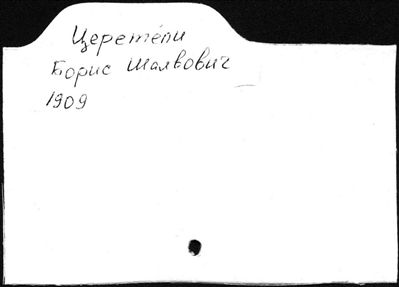 Церетели
Борис Шалвович
1909